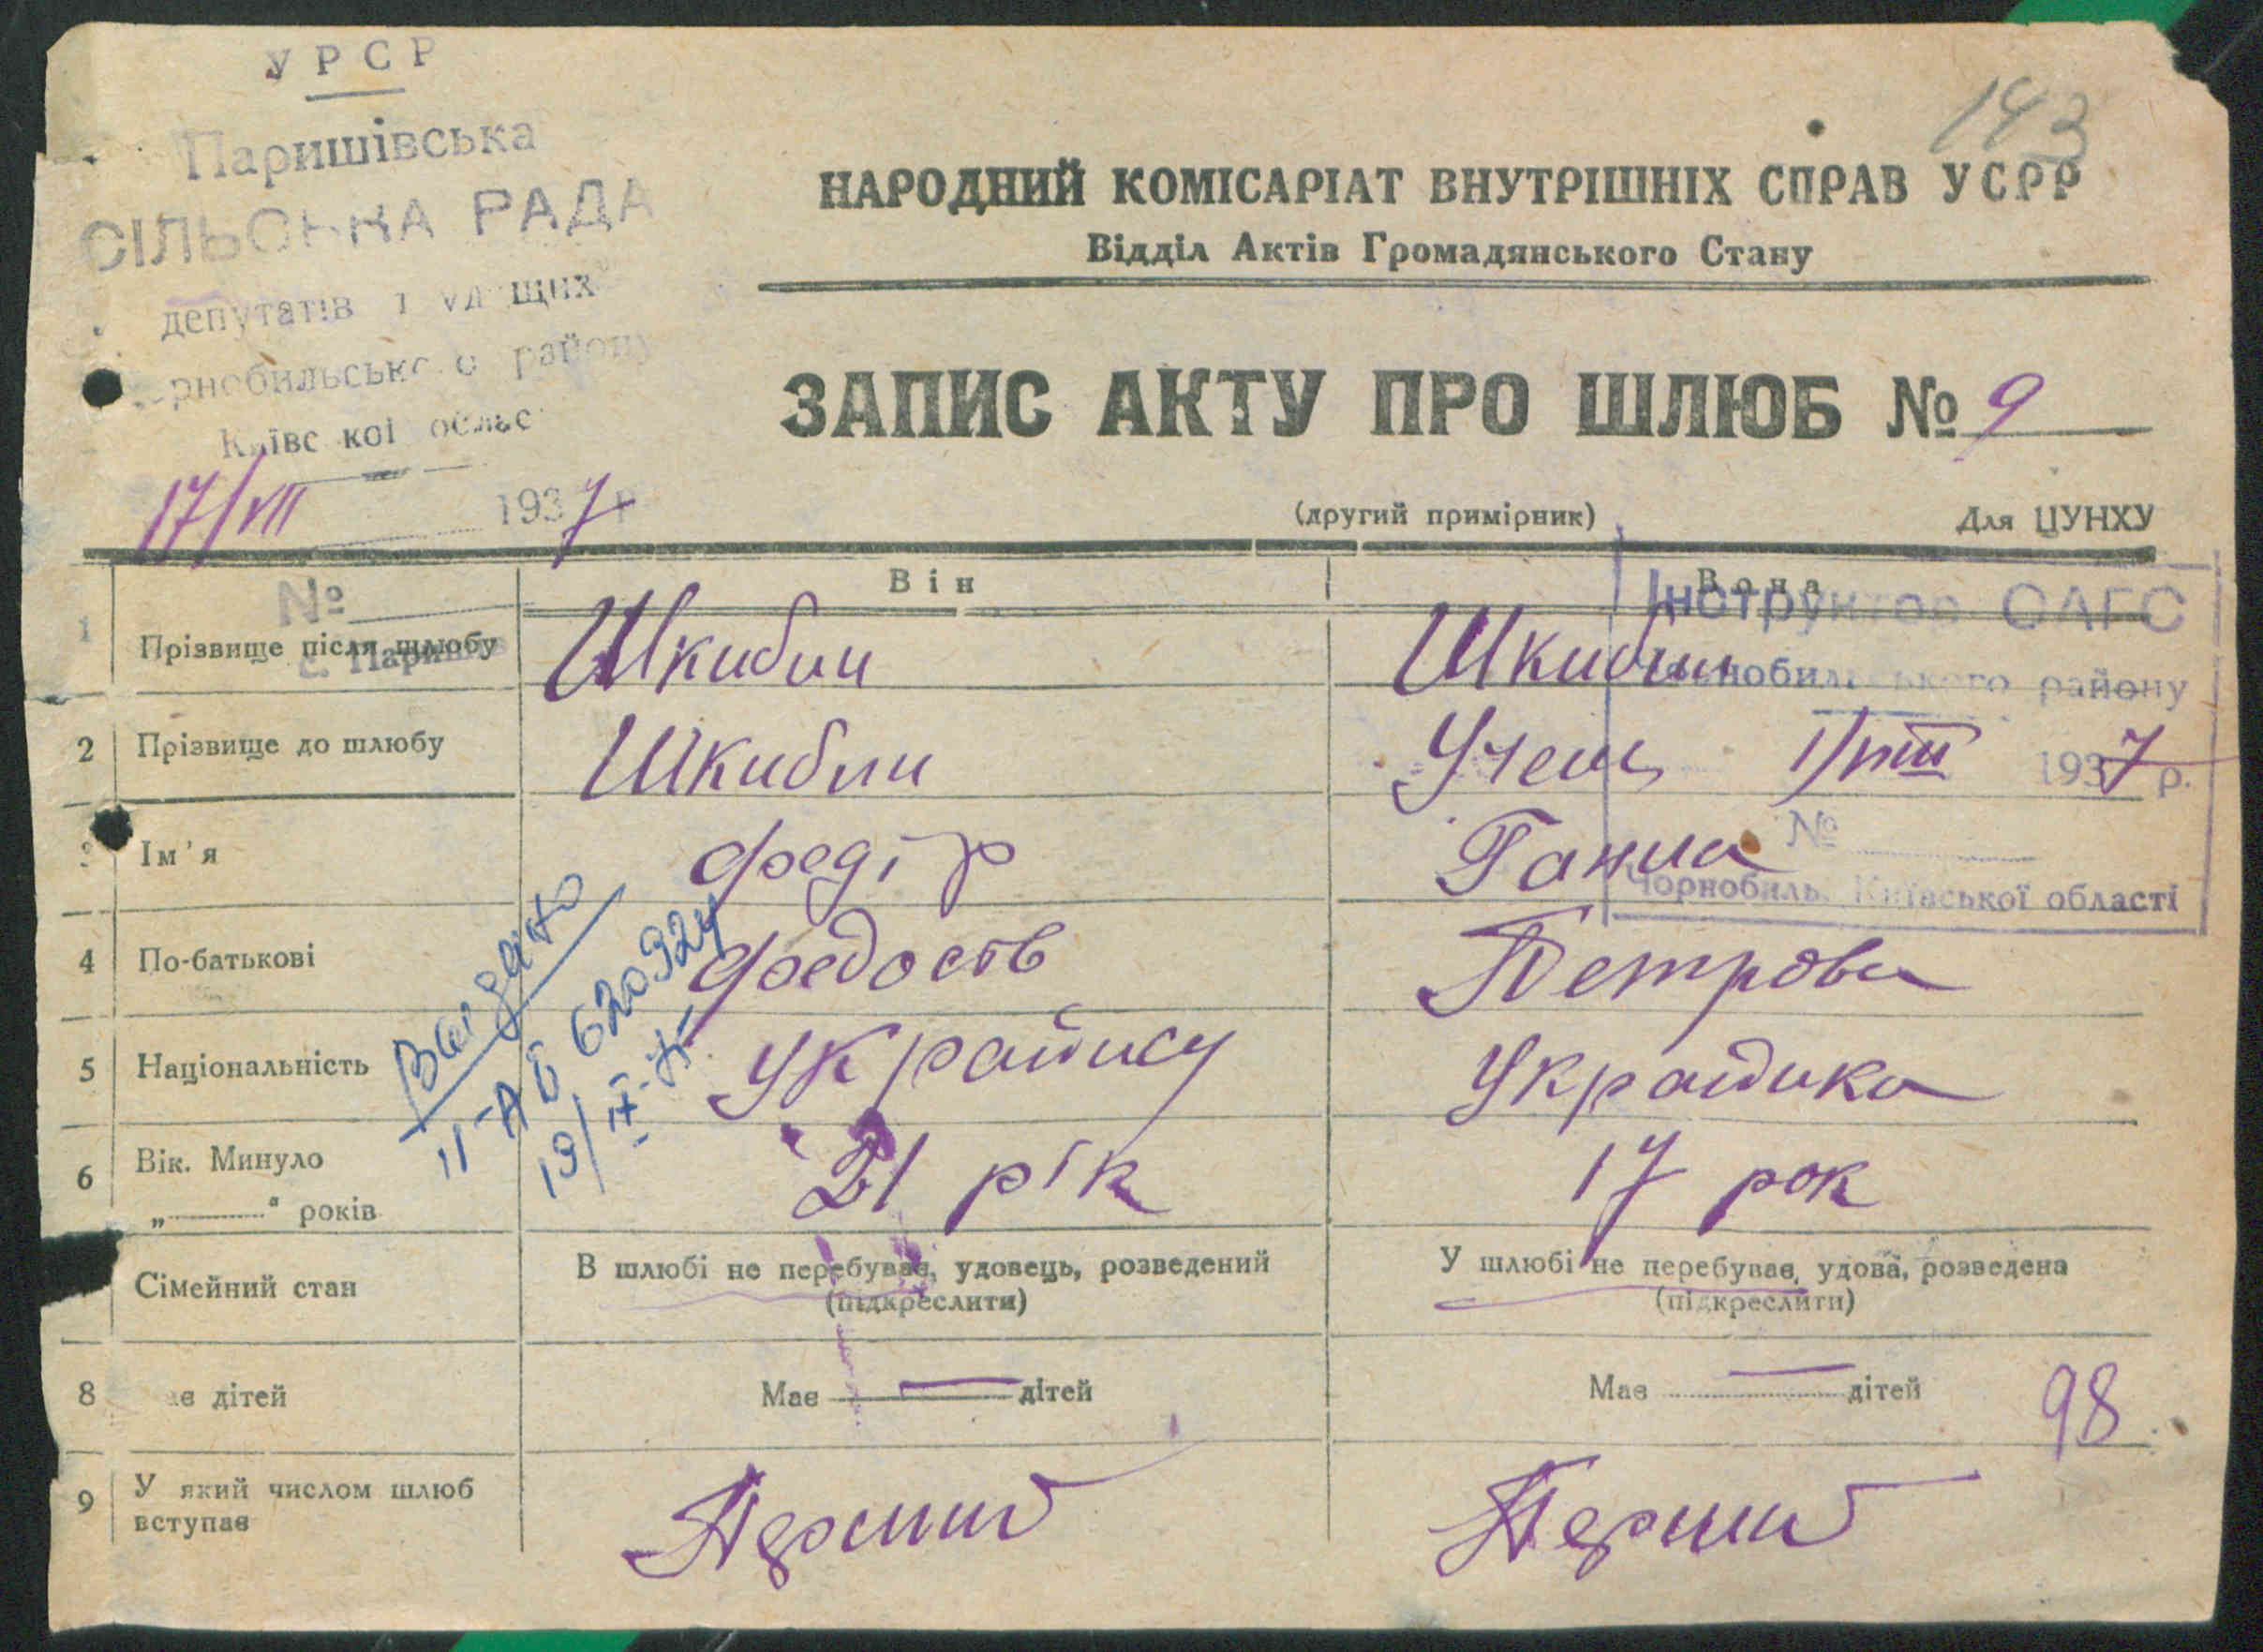 УРСР
Паришівська
СІЛЬСЬКА РАДА
депутатів
рнобильсько о району
Київс кої облас
17/VII 1937 р
143
НАРОДНИЙ КОМІСАРІАТ ВНУТРІШНІХ СПРАВ УСРР
Відділ Актів Громадянського Стану
ЗАПИС АКТУ ПРО ШЛЮБ № 9
(другий примірник) Для ЦУНХУ
№
с. Паришів
Він Вона
Інструктор ОАГС
Чорнобильського району
1937 р.
№
Чорнобиль, Київської області
1 Прізвище після шлюбу Шкибли Шкибли
2 Прізвище до шлюбу Шкибли
3 Ім'я Федір Ганна
4 По-батькові Федосов Петрова
5 Національність Українец Українка
6 Вік. Минуло 21 рік 17 рок
„ “ років
Видано
II-АБ 620924
19/IX-75
Сімейний стан В шлюбі не перебував, удовець, розведений У шлюбі не перебував, удова, розведена
(підкреслити) (підкреслити)
8 ає дітей Має — дітей Має — дітей
98
9 У який числом шлюб Перший Перший
вступає